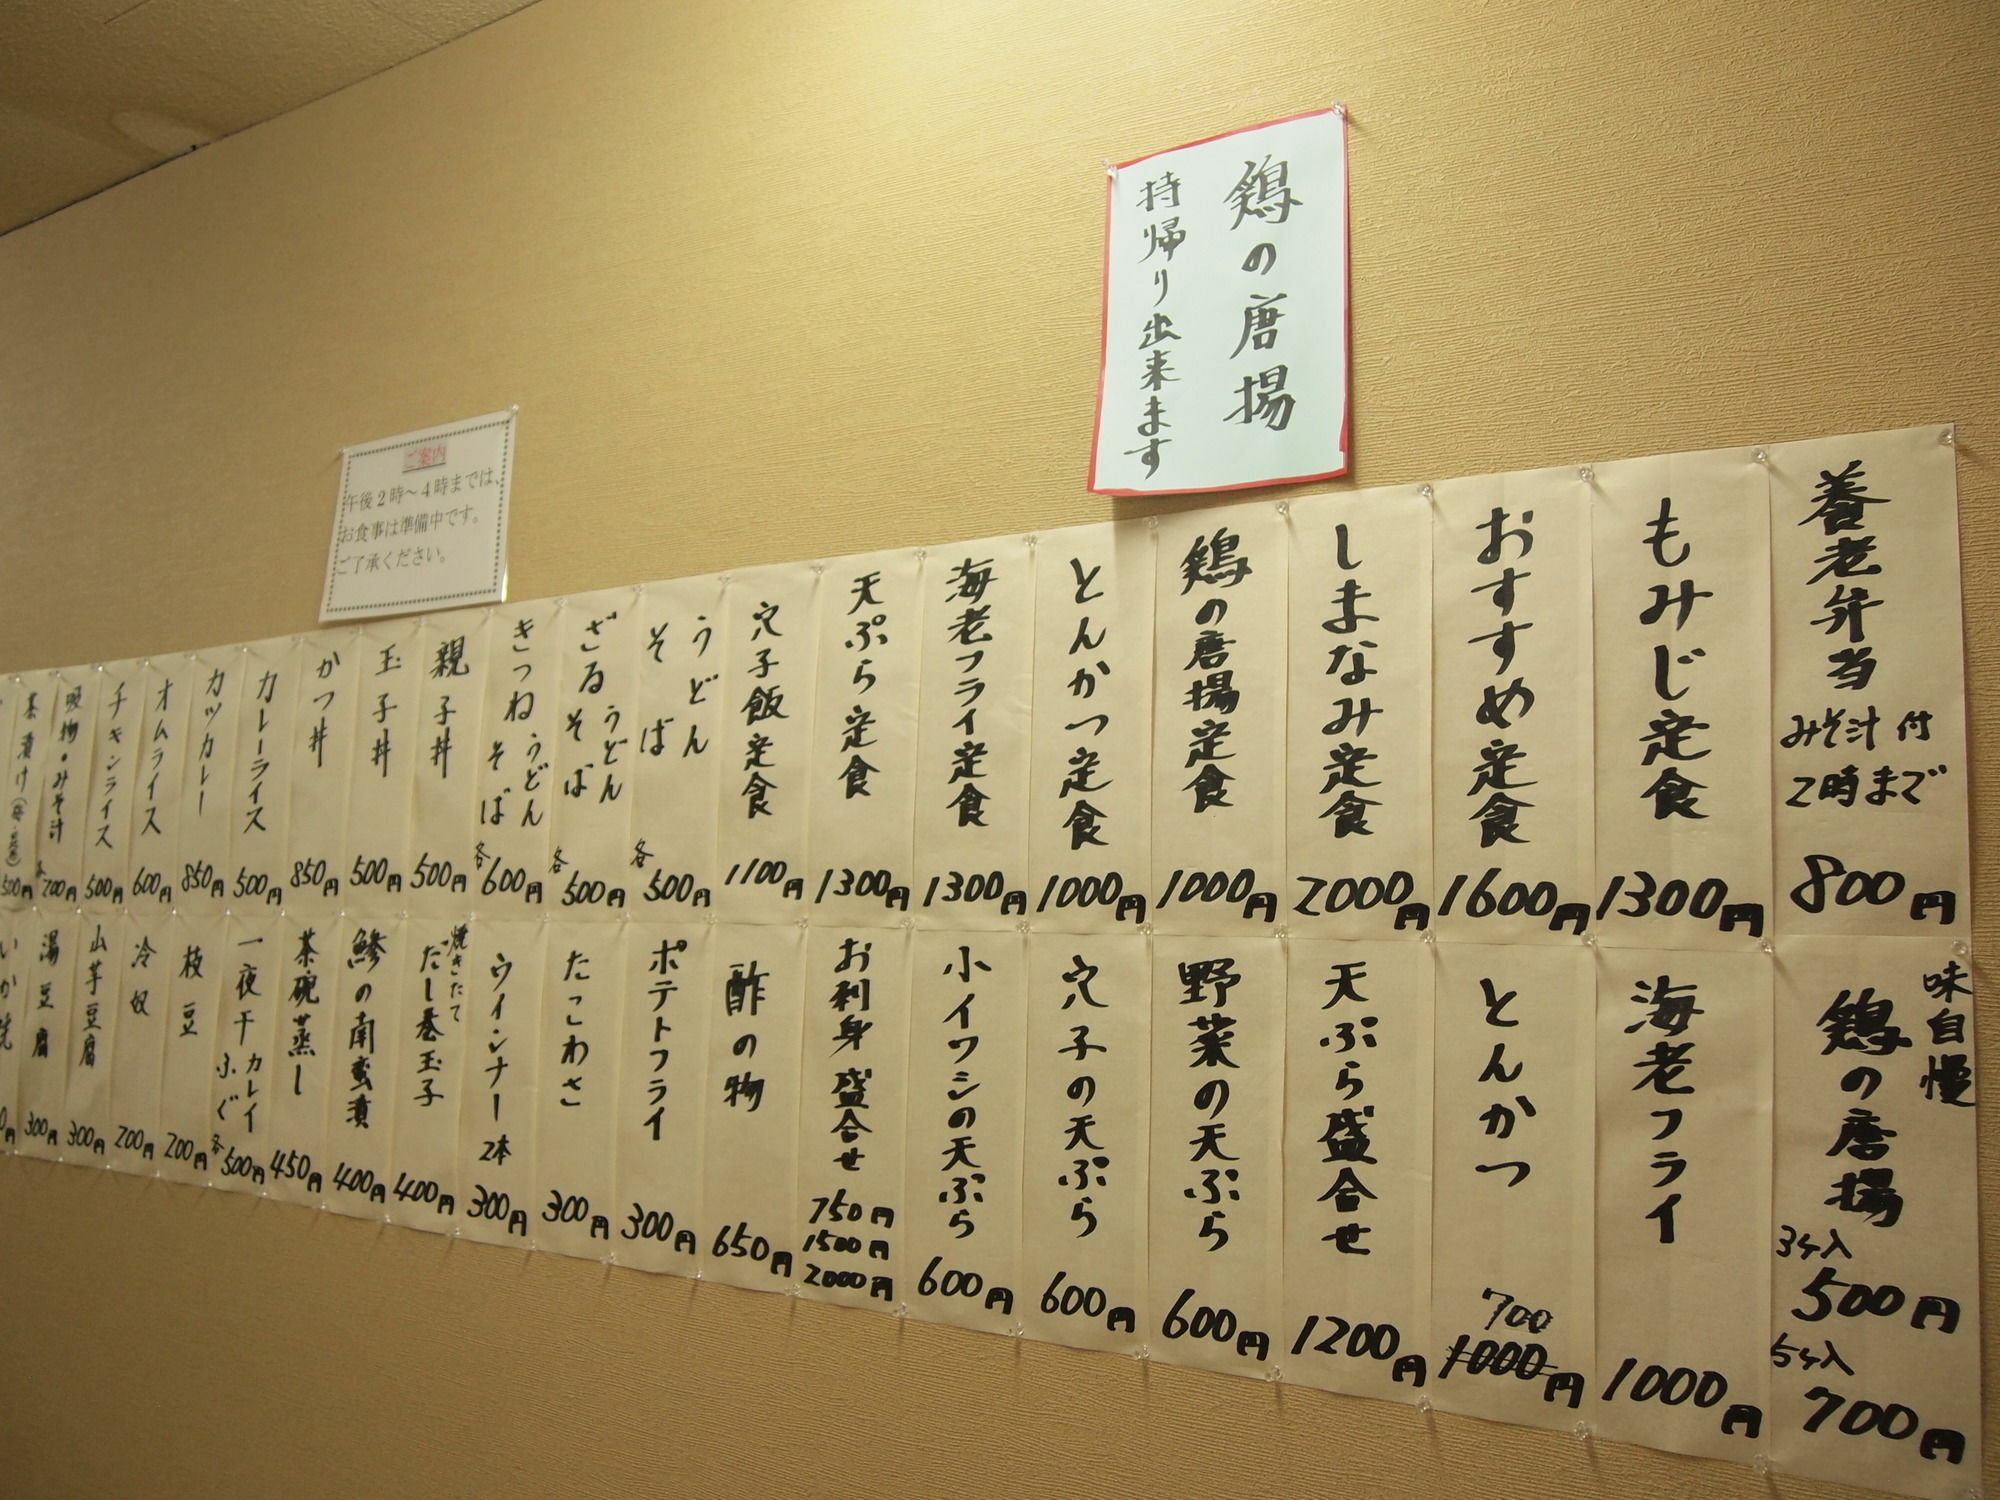 鶏の唐揚
持帰り出来ます
ご案内
午後2時～4時までは、
お食事は準備中です。
ご了承ください。
養老弁当
みそ汁付
2時まで
800円
もみじ定食
1300円
おすすめ定食
1600円
しまなみ定食
2000円
鶏の唐揚定食
1000円
とんかつ定食
1000円
海老フライ定食
1300円
天ぷら定食
1300円
穴子飯定食
1100円
うどん
そば
各500円
ざるうどん
そば
各500円
きつねうどん
そば
各600円
親子丼
500円
玉子丼
500円
かつ丼
850円
カレーライス
500円
カツカレー
850円
オムライス
600円
チキンライス
500円
吸物・みそ汁
200円
茶漬け
500円
味自慢
鶏の唐揚
3ケ入
500円
5ケ入
700円
海老フライ
1000円
とんかつ
700
1000円
天ぷら盛合せ
1200円
野菜の天ぷら
600円
穴子の天ぷら
600円
小イワシの天ぷら
600円
お刺身盛合せ
750円
1500円
2000円
酢の物
650円
ポテトフライ
300円
たこわさ
300円
ウインナー2本
300円
焼きたて
だし巻玉子
400円
鯵の南蛮漬
400円
茶碗蒸し
450円
一夜干カレイ
ふぐ
各500円
枝豆
200円
冷奴
200円
山芋豆腐
300円
湯豆腐
300円